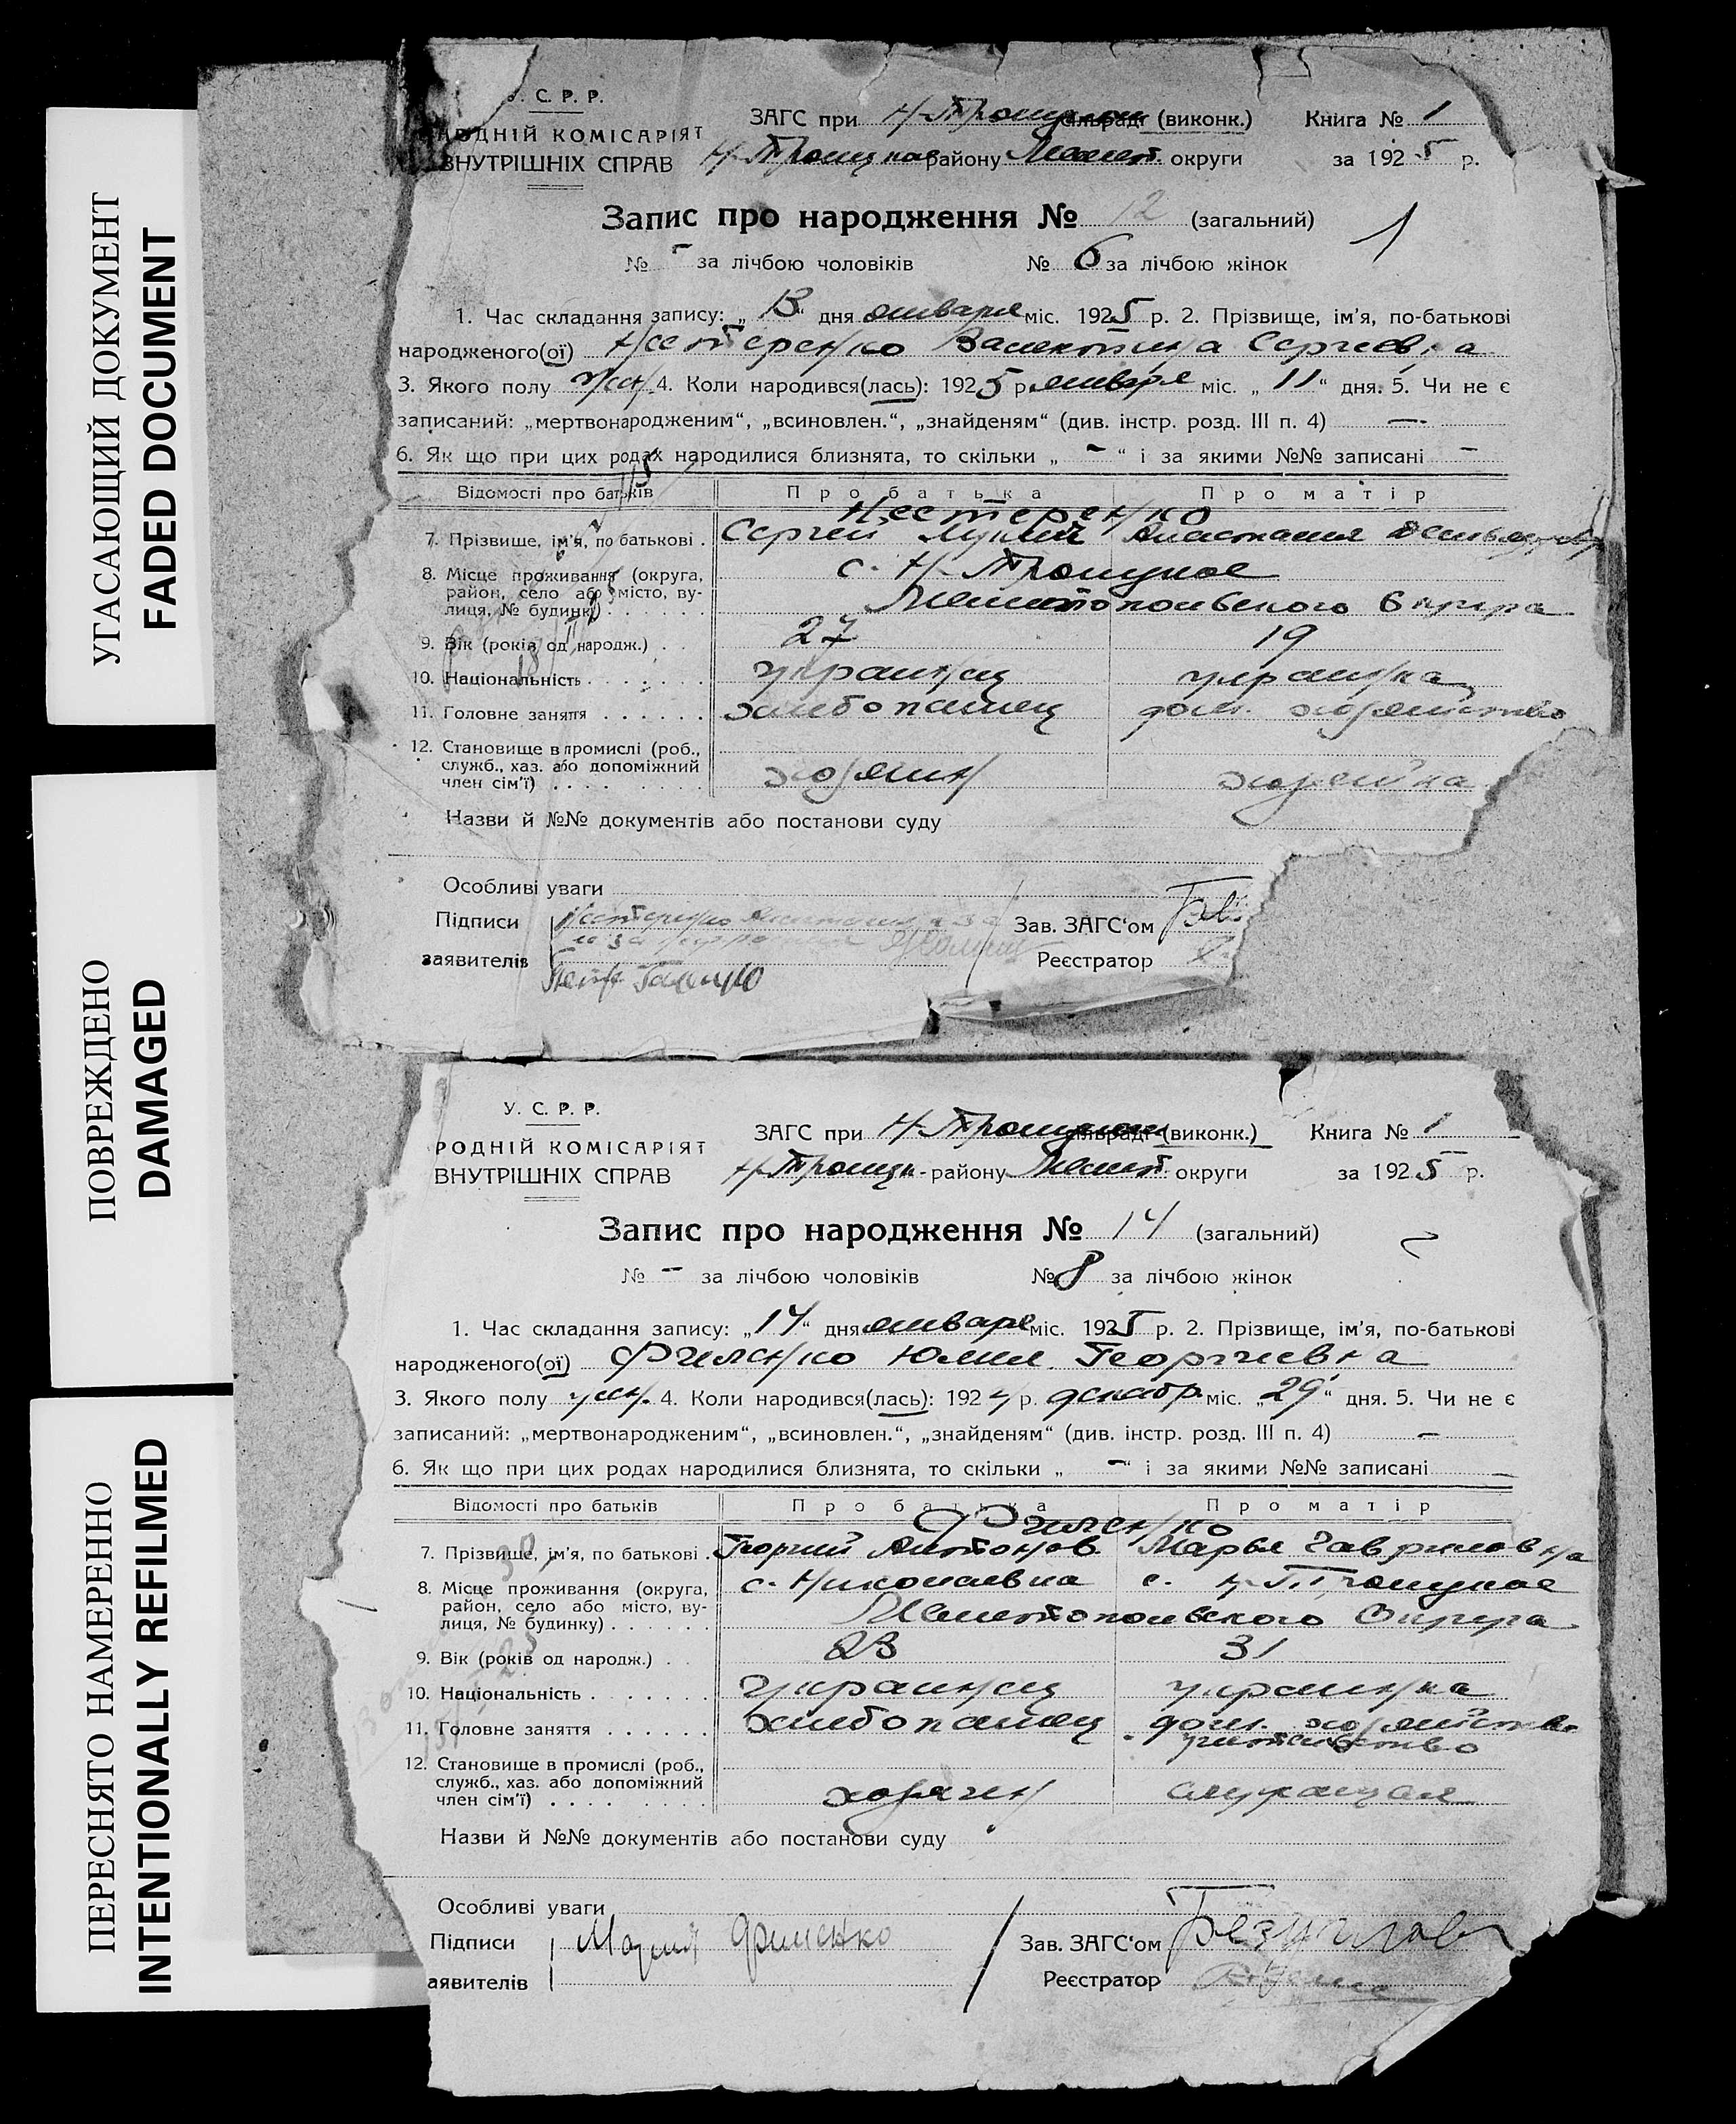 УГАСАЮЩИЙ ДОКУМЕНТ
FADED DOCUMENT
ПОВРЕЖДЕНО
DAMAGED
ПЕРЕСНЯТО НАМЕРЕННО
INTENTIONALLY REFILMED
С. Р. Р.
РОДНІЙ КОМІСАРІЯТ
ВНУТРІШНІХ СПРАВ
ЗАГС при Н-Троицком сільраді (виконк.) Книга № 1
Н-Троицкое району Мелит. округи за 1925 р.
Запис про народження № 12 (загальний)
1
№ - за лічбою чоловіків № 6 за лічбою жінок
1. Час складання запису: „13“ дня января міс. 1925 р. 2. Прізвище, ім'я, по-батькові
народженого(ої) Нестеренко Валентина Сергеевна
3. Якого полу жен. 4. Коли народився(лась): 1925 р. января міс. „11“ дня. 5. Чи не є
записаний: „мертвонародженим“, „всиновлен.“, „знайденям“ (див. інстр. розд. III п. 4) —
6. Як що при цих родах народилися близнята, то скільки „ - “ і за якими №№ записані -
Відомості про батьків Про батька Про матір
Нестеренко
7. Прізвище, ім'я, по батькові . Сергей Анастасия
8. Місце проживання (округа, с. Н-Троицкое
район, село або місто, ву-
лиця, № будинку) . . . . . Мелитопольского Округа
9. Вік (років од народж.) . . 27 19
10. Національність . . . . . . . украинец украинка
11. Головне заняття . . . . . . хлебопашец дом. хозяйство
12. Становище в промислі (роб.,
служб., хаз. або допоміжний хозяин хозяйка
член сім'ї) . . . . . . . . .
Назви й №№ документів або постанови суду
Особливі уваги
Підписи Нестеренко Анастасия а за Зав. ЗАГС'ом
заявителів Реєстратор
Петр
У. С. Р. Р.
РОДНІЙ КОМІСАРІЯТ
ВНУТРІШНІХ СПРАВ
ЗАГС при Н-Троицком сільраді (виконк.) Книга № 1
Н-Троицк- району Мелит. округи за 1925 р.
Запис про народження № 14 (загальний)
№ - за лічбою чоловіків № 8 за лічбою жінок
1. Час складання запису: „14“ дня января міс. 1925 р. 2. Прізвище, ім'я, по-батькові
народженого(ої) Филенко Юлия Георгиевна
3. Якого полу жен. 4. Коли народився(лась): 1924 р. декабр. міс. „29“ дня. 5. Чи не є
записаний: „мертвонародженим“, „всиновлен.“, „знайденям“ (див. інстр. розд. III п. 4) —
6. Як що при цих родах народилися близнята, то скільки „ - “ і за якими №№ записані
Відомості про батьків Про батька Про матір
Филенко
7. Прізвище, ім'я, по батькові . Георгий Антонов. Марья Гавриловна
8. Місце проживання (округа, с. Николаевка с. Н-Троицкое
район, село або місто, ву-
лиця, № будинку) . . . . . . Мелитопольского Округа
9. Вік (років од народж.) . . 23 31
10. Національність . . . . . . . украинец украинка
11. Головне заняття . . . . . . хлебопашец дом. хозяйство
учительство
12. Становище в промислі (роб.,
служб., хаз. або допоміжний хозяин служащая
член сім'ї) . . . . . . . . .
Назви й №№ документів або постанови суду
Особливі уваги
Підписи Филенко Зав. ЗАГС'ом
аявителів Реєстратор